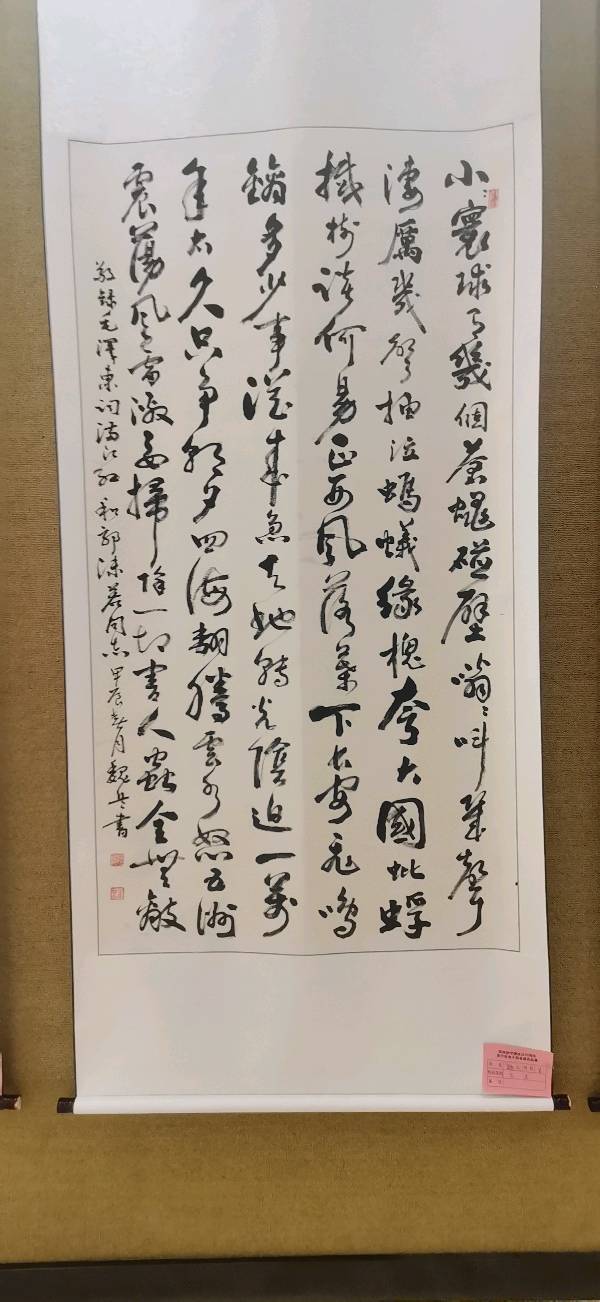 小小寰球有幾個蒼蠅碰壁嗡嗡叫幾聲
淒厲幾聲抽泣螞蟻緣槐夸大國蚍蜉
撼樹談何易正西風落葉下長安飛鳴
鏑多少事從來急天地轉光陰迫一萬
年太久只爭朝夕四海翻騰雲水怒五洲
震蕩風雷激要掃除一切害人蟲全無敵
敬錄毛澤東詞滿江紅和郭沫若同志甲辰春月魏書